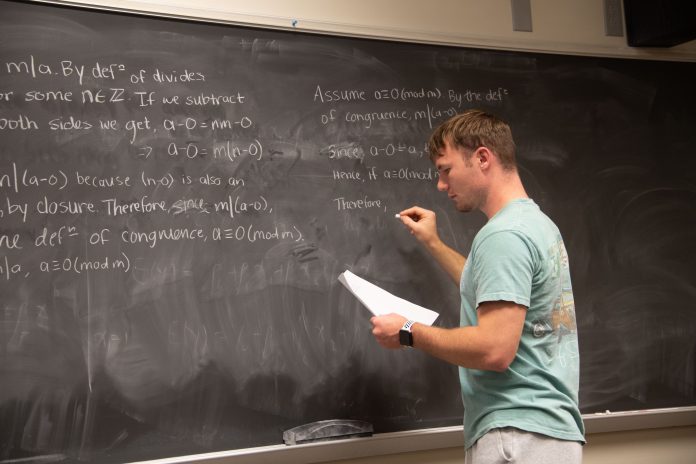 m|a. By defⁿ of divides
for some n∈ℤ. If we subtract
both sides we get, a-0=nm-0
=> a-0=m(n-0)
m|(a-0) because (n-0) is also an
, by closure. Therefore, since m|(a-0),
the defⁿ of congruence, a≡0(mod m).
m|a, a≡0(mod m).
Assume a≡0(mod m). By the defⁿ
of congruence, m|(a-0)
Since, a-0=a,
Hence, if a≡0(mod
Therefore,